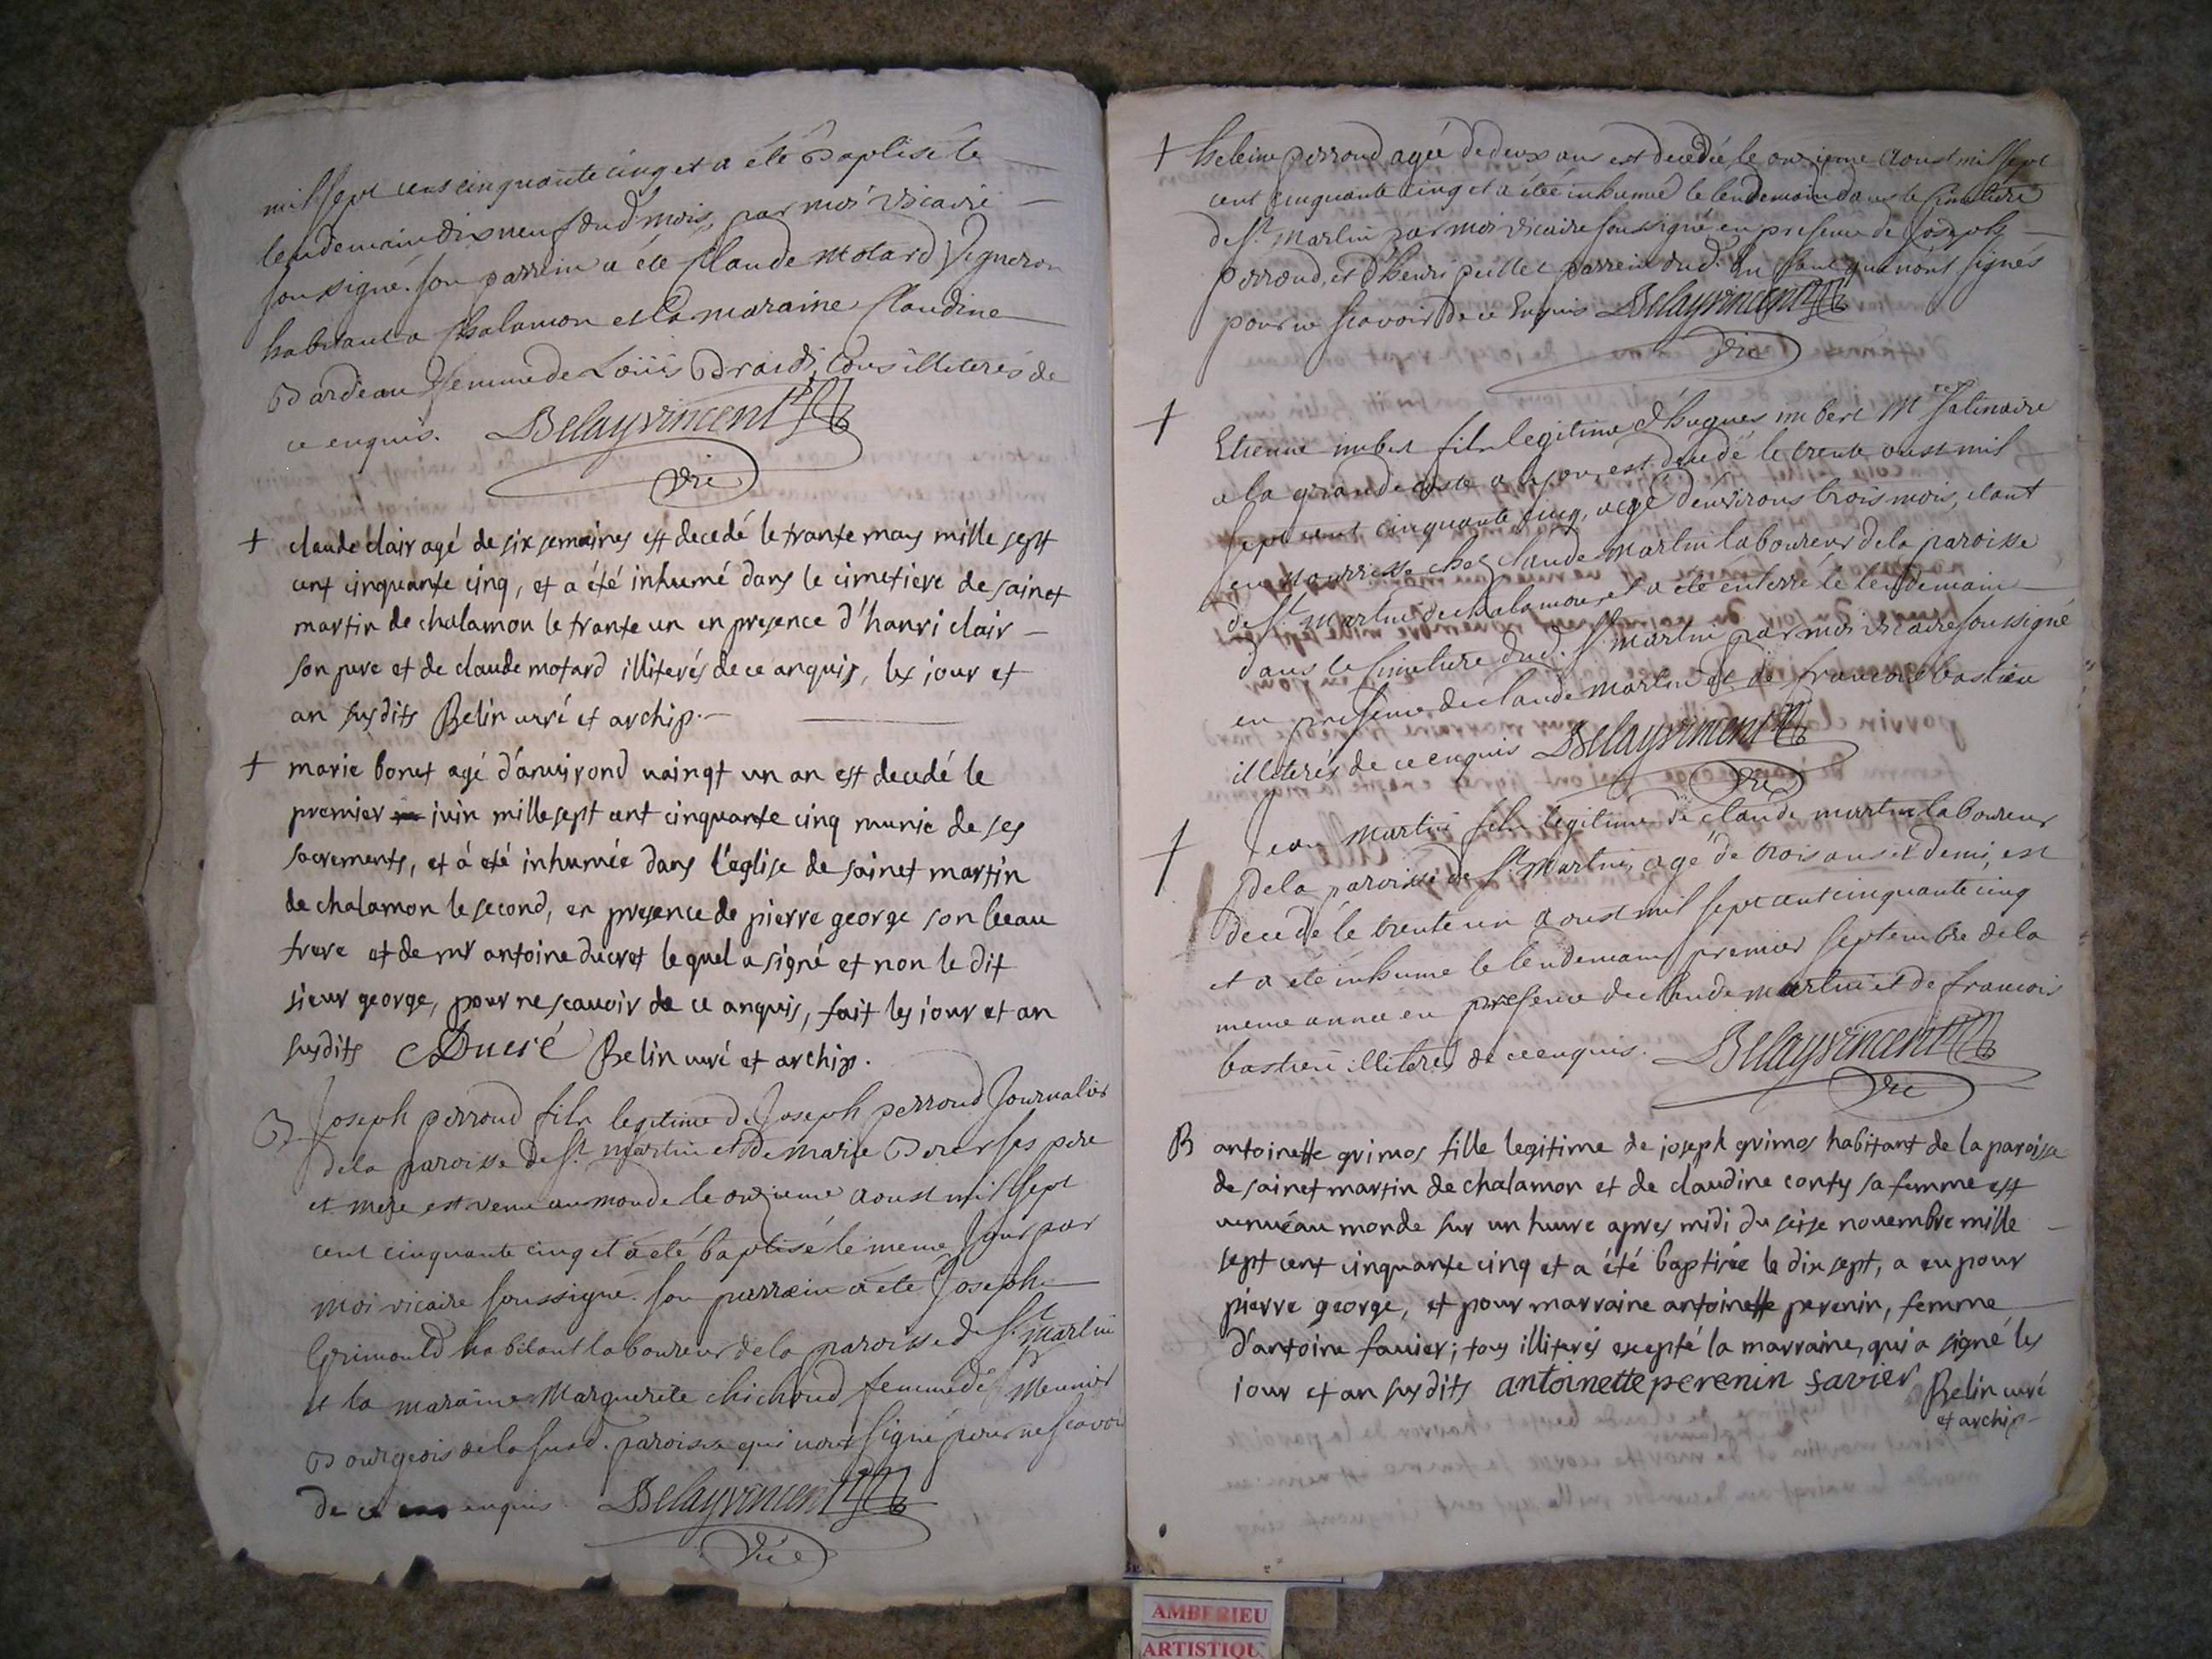 mil sept cens cinquante cinq et a été Baptisé le
lendemain dix neuf dud. mois, par moi vicaire
soussigné. son parrein a été Claude Motard Vigneron
habitant a Chalamon et la maraine Claudine
Bardeau femme de Loüis Braidi, tous illiterés de
ce enquis. Delayvincent
vic
+ claude clair agé de six semaines est decedé le trante mays mille sept
cent cinquante cinq, et a été inhumé dans le cimetiere de sainct
martin de chalamon le trante un en presence d'hanri clair
son pere et de claude motard illiterés de ce anquis, les jour et
an susdits Belin curé et archip.
+ marie bonet agé d'anvirond vaingt un an est decedé le
premier juin mille sept cent cinquante cinq munie de ses
sacrements, et á eté inhumée dans l'eglise de sainct martin
de chalamon le second, en presence de pierre george son beau
frere et de mr antoine ducret le quel a signé et non le dit
sieur george, pour ne scavoir de ce anquis, fait les jour et an
susdits Ducré Belin curé et archip.
B Joseph perroud fils legitime de Joseph perroud Journalier
de la paroisse de St martin et de marie ses pere
et mere est venu au monde le onzieme aoust mil sept
cent cinquante cinq et a été baptisé le meme Jour par
moi vicaire soussigné. son parrein a été Joseph
Grimould habitant laboureur de la paroisse de St. Martin
et la maraine Marguerite chichoud femme de Sr Meunier
Bourgeois de la susd. paroisse qui n'ont signé pour ne scavoir
de ce enquis. Delayvincent
vic
+ heleine perroud agée de deux ans est decedée le onzieme Aoust mil sept
cent cinquante cinq et a étée inhumée le lendemain dans le Cimetiere
de St. Martin par moi vicaire soussigné en presence de Joseph
perroud, et d'henri peillet parrein dud. qui n'ont signés
pour ne scavoir de ce Enquis Delayvincent
vic
+ Etienne imbert fils legitime d'hugues imbert Mtre satinaire
a la grande coste a lyon, est decedé le trente aoust mil
sept cent cinquante cinq, agé d'environs trois mois, etant
en nourrisse chez claude Martin laboureur de la paroisse
de St. Martin de chalamon, et a été enterré le lendemain
dans le Cimetiere dud. St martin par moi vicaire soussigné
en presence de claude martin et de francois bastien
illiterés de ce enquis Delayvincent
vic
+ Jean Martin fils legitime de claude martin laboureur
de la paroisse de St. Martin, agé de trois ans et demi, est
decedé le trente un aoust mil sept cent cinquante cinq
et a été inhumé le lendemain premier septembre de la
meme année en presence de claude martin et de francois
bastien illiterés de ce enquis. Delayvincent
vic
B antoinette grimos fille legitime de joseph grimos habitant de la paroisse
de sainct martin de chalamon et de claudine conty sa femme est
venue au monde sur un heure apres midi du seise novembre mille
sept cent cinquante cinq et a été baptisée le dix sept, a eu pour
pierre george, et pour marraine antoinette perenin, femme
d'antoine favier; tous illiterés excepté la marraine, qui a signé les
jour et an susdits antoinette perenin favier Belin curé
et archip
AMBERIEU
ARTISTIQU